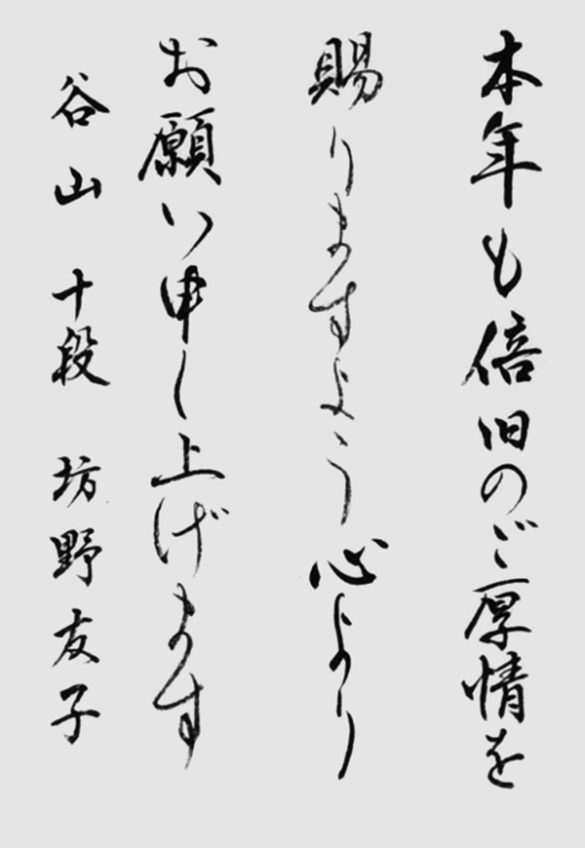 本年も倍旧のご厚情を
賜りますよう心より
お願い申し上げます
谷山 十段 坊野友子